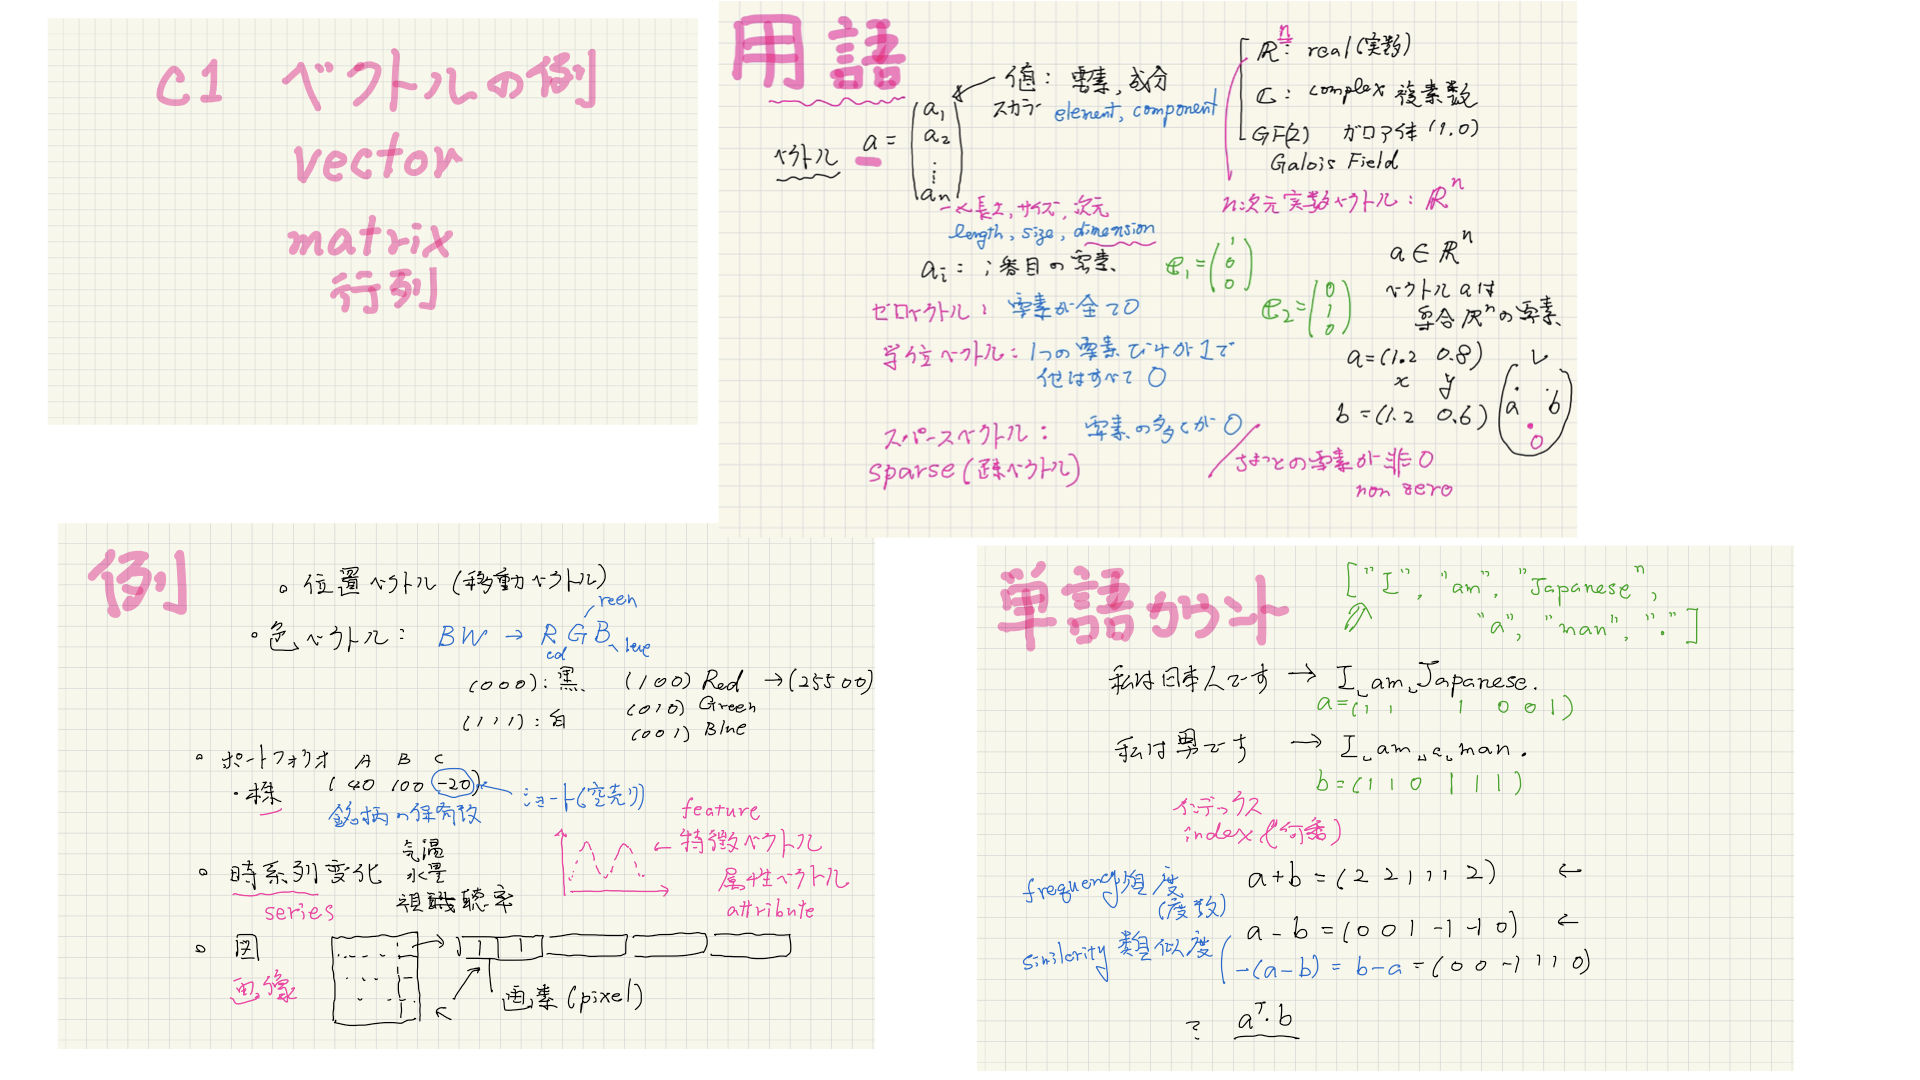 C1 ベクトルの例
vector
matrix
行列
用語
ベクトル a = (a1 a2 ⋮ an)
値: 要素, 成分
スカラ element, component
長さ, サイズ, 次元
length, size, dimension
ai = i番目の要素
ゼロベクトル: 要素が全て0
単位ベクトル: 1つの要素だけが1で
他はすべて 0
スパースベクトル: 要素の多くが 0
sparse (疎ベクトル)
ちょっとの要素が非0
non zero
R^n: real (実数)
C: complex 複素数
GF(2) ガロア体 (1,0)
Galois Field
n次元実数ベクトル: R^n
e1 = (1 0 0)
e2 = (0 1 0)
a ∈ R^n
ベクトル aは
集合 R^n の要素
a = (1.2 0.8)
x y
b = (1.2 0.6)
V
a b
0
例
○ 位置ベクトル (移動ベクトル)
○ 色ベクトル: BW → RGB
ed reen lue
(000): 黒 (100) Red → (255 0 0)
(010) Green
(111): 白
(001) Blue
○ ポートフォリオ A B C
・株 (40 100 -20) ショート(空売り)
銘柄の保有数
feature
特徴ベクトル
属性ベクトル
attribute
○ 時系列変化
series
気温
水量
視聴率
○ 図
画像
1 1
画素 (pixel)
単語カウント
["I", "am", "Japanese",
"a", "man", "."]
私は日本人です → I am Japanese.
a = (1 1 1 0 0 1)
私は男です → I am a man.
b = (1 1 0 1 1 1)
インデックス
index (何番)
frequency 頻度
(度数)
a+b = (2 2 1 1 1 2) ←
a-b = (0 0 1 -1 -1 0) ←
similerity 類似度
-(a-b) = b-a = (0 0 -1 1 1 0)
? a^T・b